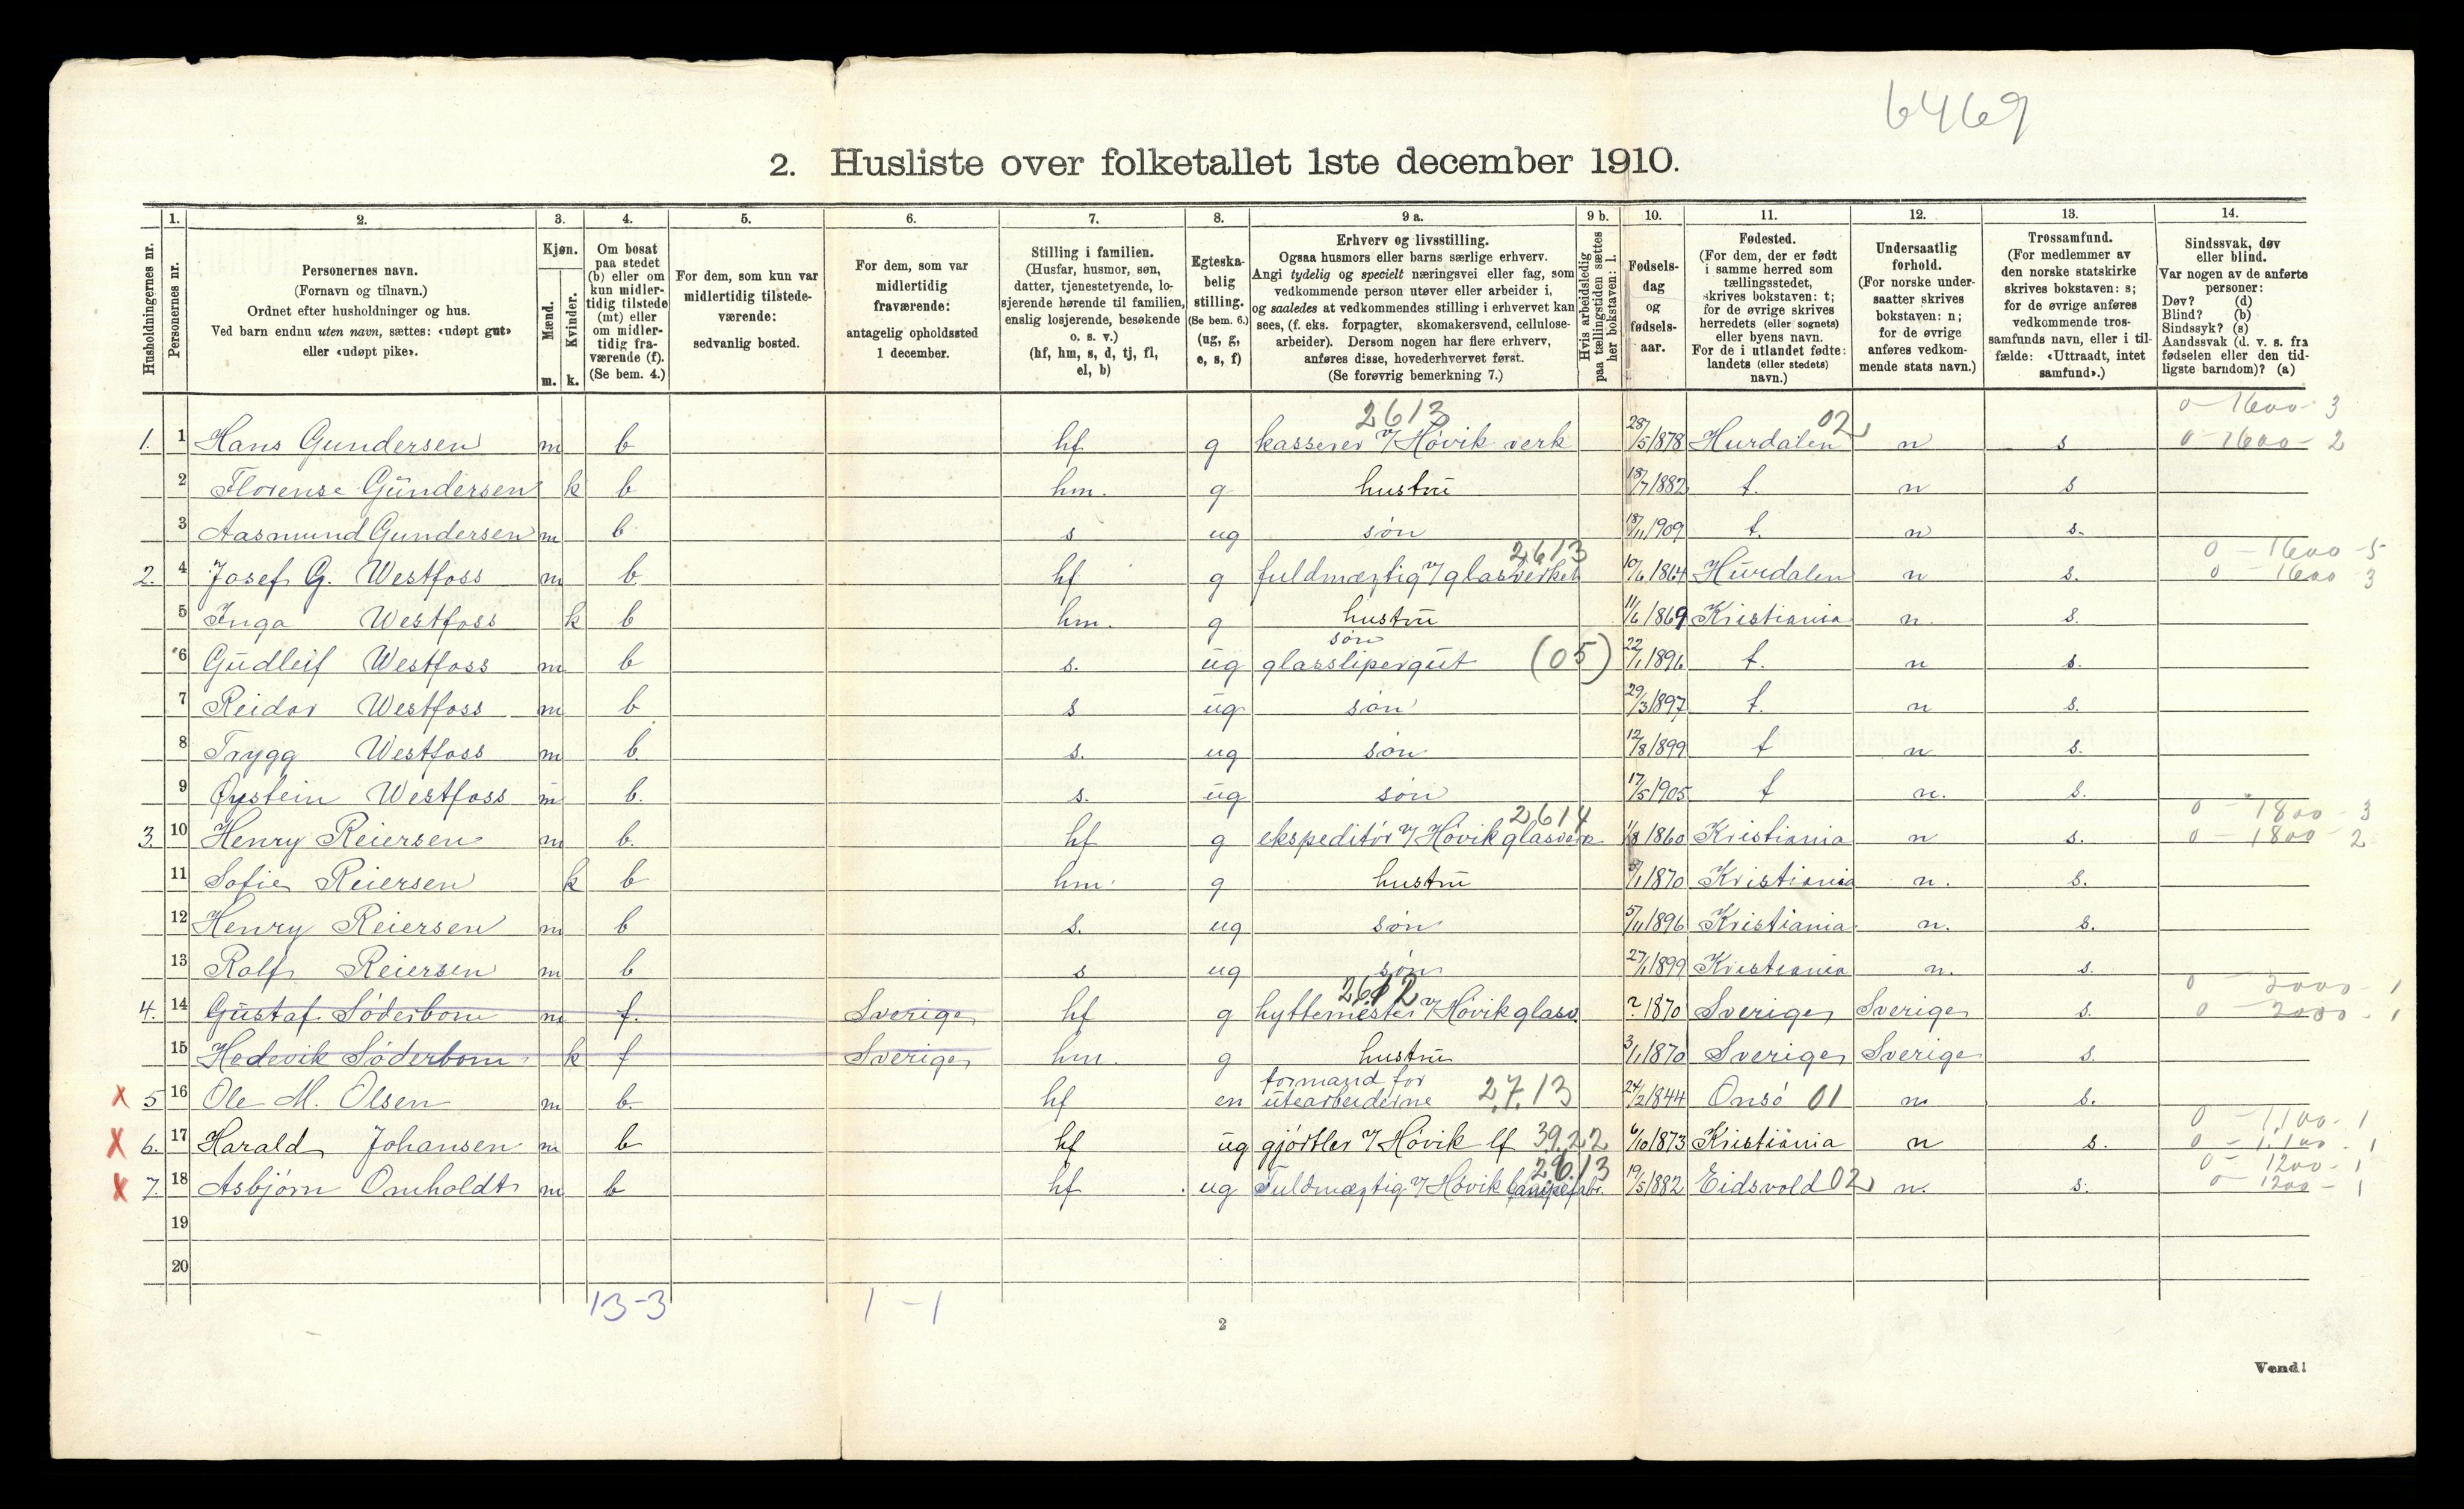 6469
2. Husliste over folketallet 1ste december 1910.
Husholdningernes nr.
1.
Personernes nr.
2.
Personernes navn.
(Fornavn og tilnavn.)
Ordnet efter husholdninger og hus.
Ved barn endnu uten navn, sættes: «udøpt gut»
eller «udøpt pike».
3.
Kjøn.
Mænd.
Kvinder.
m. k.
4.
Om bosat
paa stedet
(b) eller om
kun midler-
tidig tilstede
(mt) eller
om midler-
tidig fra-
værende (f).
(Se bem. 4.)
5.
For dem, som kun var
midlertidig tilstede-
værende:
sedvanlig bosted.
6.
For dem, som var
midlertidig
fraværende:
antagelig opholdssted
1 december.
7.
Stilling i familien.
(Husfar, husmor, søn,
datter, tjenestetyende, lo-
sjerende hørende til familien,
enslig losjerende, besøkende
o. s. v.)
(hf, hm, s, d, tj, fl,
el, b)
8.
Egteska-
belig
stilling.
(Se bem. 6.)
(ug, g,
e, s, f)
9 a.
Erhverv og livsstilling.
Ogsaa husmors eller barns særlige erhverv.
Angi tydelig og specielt næringsvei eller fag, som
vedkommende person utøver eller arbeider i,
og saaledes at vedkommendes stilling i erhvervet kan
sees, (f. eks. forpagter, skomakersvend, cellulose-
arbeider). Dersom nogen har flere erhverv,
anføres disse, hovederhvervet først.
(Se forøvrig bemerkning 7.)
9 b.
Hvis arbeidsledig
paa tællingstiden sættes
her bokstaven: l.
10.
Fødsels-
dag
og
fødsels-
aar.
11.
Fødested.
(For dem, der er født
i samme herred som
tællingsstedet,
skrives bokstaven: t;
for de øvrige skrives
herredets (eller sognets)
eller byens navn.
For de i utlandet fødte:
landets (eller stedets)
navn.)
12.
Undersaatlig
forhold.
(For norske under-
saatter skrives
bokstaven: n;
for de øvrige
anføres vedkom-
mende stats navn.)
13.
Trossamfund.
(For medlemmer av
den norske statskirke
skrives bokstaven: s;
for de øvrige anføres
vedkommende tros-
samfunds navn, eller i til-
fælde: «Uttraadt, intet
samfund».)
14.
Sindssvak, døv
eller blind.
Var nogen av de anførte
personer:
Døv? (d)
Blind? (b)
Sindssyk? (s)
Aandssvak (d. v. s. fra
fødselen eller den tid-
ligste barndom)? (a)
2613 02 0-1600-3
1. 1 Hans Gundersen m b hf g kasserer v/Høvik verk 28/5 1878 Hurdalen n s 0-1600-2
2 Florense Gundersen k b hm. g hustru 18/7 1882 t. n s
3 Aasmund Gundersen m b s ug søn 18/11 1909 t. n s.
2613 0-1600-5
2. 4 Josef G. Westfoss m b. hf g fuldmægtig v/glasverket 10/6 1864 Hurdalen n s. 0-1600-3
5 Inga Westfoss k b hm. g hustru 11/6 1869 Kristiania n. s.
søn
6 Gudleif Westfoss m b s. ug glasslipergut (05) 22/1 1896 t. n s.
7 Reidar Westfoss m b s ug søn 29/3 1897 t. n s.
8 Trygg Westfoss m b. s. ug søn 12/8 1899 t n s.
9 Øystein Westfoss m b. s. ug søn 17/5 1905 t n. s.
2614 0-1800-3
3. 10 Henry Reiersen m b. hf g ekspeditør v/Høvik glasverk 1/8 1860 Kristiania n s. 0-1800-2
11 Sofie Reiersen k b hm. g hustru /1 1870 Kristiania n. s.
12 Henry Reiersen m b s. ug søn 5/11 1896 Kristiania n. s.
13 Rolf Reiersen m b s ug søn 27/1 1899 Kristiania n. s.
2612 0-2000-1
4. 14 Gustaf Søderbom m f. Sverige hf g hyttemester v/Høvik glasv. ? 1870 Sverige Sverige s. 0-2000-1
15 Hedevik Søderbom k f Sverige hm. g hustru 3/1 1870 Sverige Sverige s.
formand for
x 5 16 Ole M. Olsen m b. hf en utearbeiderne 2.7.13 24/2 1844 Onsø 01 n s.
0-1,100-1
x 6. 17 Harald Johansen m b hf ug gjørtler v/Høvik lf 39.22 6/10 1873 Kristiania n s. 0-1,100-1
26.13 0-1200-1
x 7. 18 Asbjørn Omholdt m b hf ug Fuldmægtig v/Høvik lampefabr. 19/5 1882 Eidsvold 02 n. s. 0-1200-1
19
20
13-3 1-1
2
Vend!